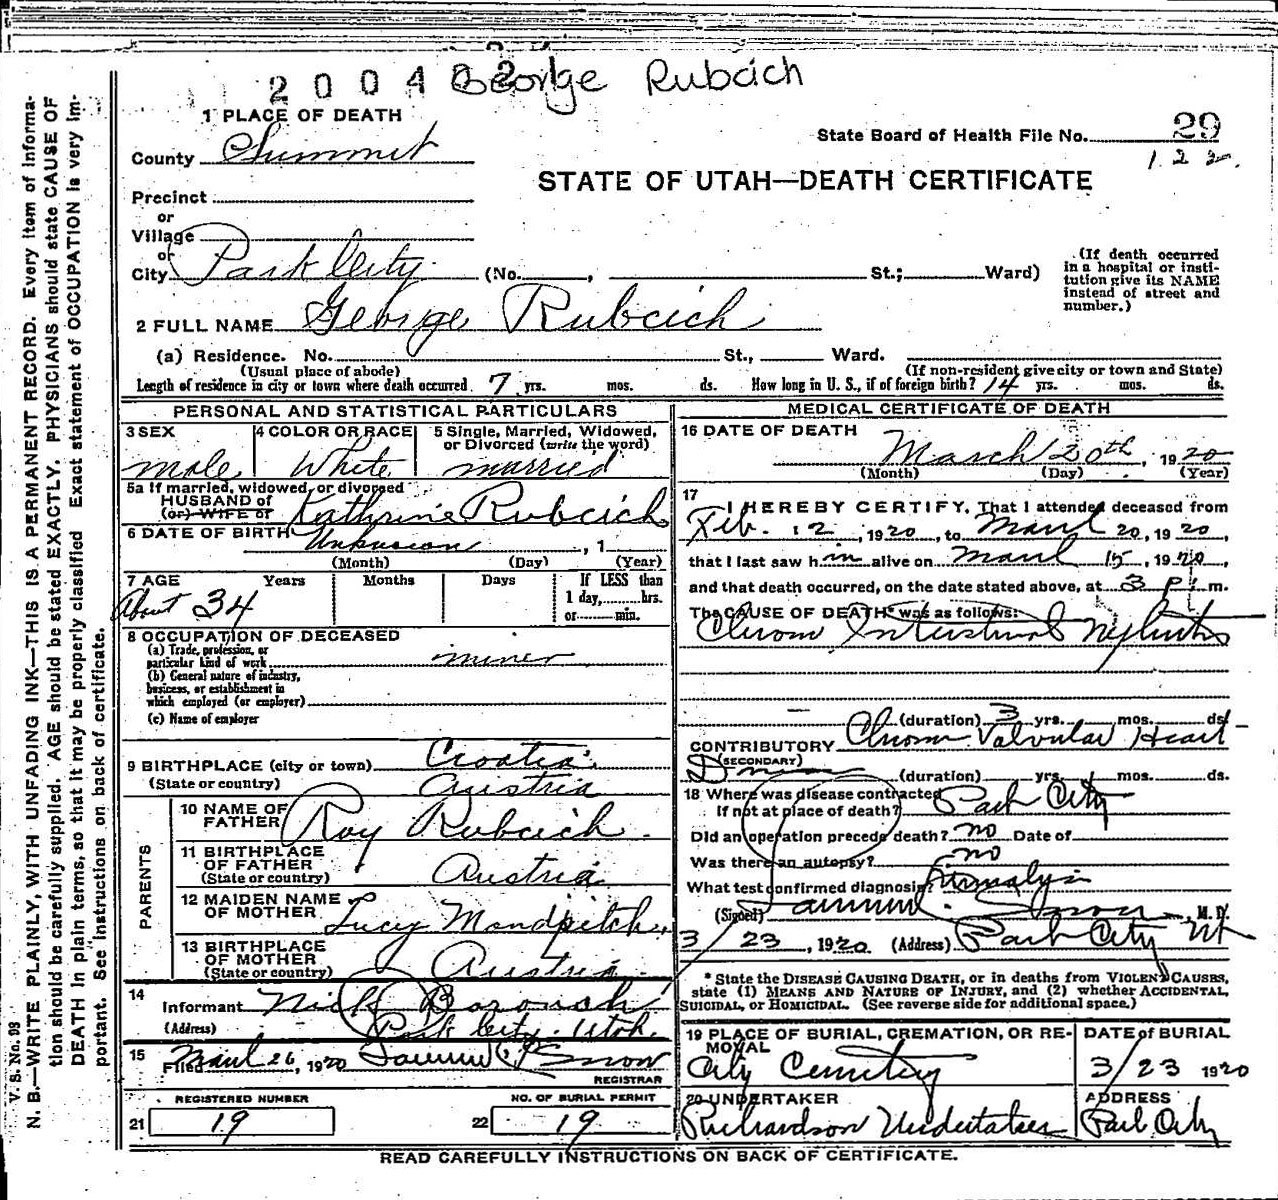 2 0 0 4 0 2 1 George Rubcich
1 PLACE OF DEATH
County Summit
State Board of Health File No. 29
122.
STATE OF UTAH—DEATH CERTIFICATE
Precinct
or
Village
or
City Park City (No. , St.; Ward)
(If death occurred in a hospital or institution give its NAME instead of street and number.)
2 FULL NAME George Rubcich
(a) Residence. No. St., Ward.
(Usual place of abode) (If non-resident give city or town and State)
Length of residence in city or town where death occurred 7 yrs. mos. ds. How long in U. S., if of foreign birth? 14 yrs. mos. ds.
PERSONAL AND STATISTICAL PARTICULARS
3 SEX 4 COLOR OR RACE 5 Single, Married, Widowed, or Divorced (write the word)
male White married
5a If married, widowed, or divorced
HUSBAND of
(or) WIFE of Kathrine Rubcich
6 DATE OF BIRTH Unknown , 1
(Month) (Day) (Year)
7 AGE Years Months Days If LESS than
1 day, hrs.
or min.
About 34
8 OCCUPATION OF DECEASED
(a) Trade, profession, or
particular kind of work miner
(b) General nature of industry,
business, or establishment in
which employed (or employer)
(c) Name of employer
9 BIRTHPLACE (city or town) Croatia
(State or country) Austria
PARENTS
10 NAME OF FATHER Roy Rubcich
11 BIRTHPLACE OF FATHER
(State or country) Austria
12 MAIDEN NAME OF MOTHER Lucy Mandpitch
13 BIRTHPLACE OF MOTHER
(State or country) Austria
14
Informant Nick Borovich
(Address) Park City Utah.
15
Filed 26, 1920 Snow
REGISTRAR
REGISTERED NUMBER NO. OF BURIAL PERMIT
21 19 22 19
MEDICAL CERTIFICATE OF DEATH
16 DATE OF DEATH
March 20th, 1920
(Month) (Day) (Year)
17
I HEREBY CERTIFY, That I attended deceased from
Feb. 12, 1920, to March 20, 1920,
that I last saw him alive on March 15, 1920,
and that death occurred, on the date stated above, at 3 p. m.
The CAUSE OF DEATH* was as follows:
Chronic Interstitial Nephritis
(duration) 3 yrs. mos. ds.
CONTRIBUTORY Chronic Valvular Heart
(SECONDARY)
Disease (duration) yrs. mos. ds.
18 Where was disease contracted
If not at place of death? Park City
Did an operation precede death? no Date of
Was there an autopsy? no
What test confirmed diagnosis? Urinalysis
(Signed) Snow, M. D.
3/23, 1920 (Address) Park City Ut
* State the DISEASE CAUSING DEATH, or in deaths from VIOLENT CAUSES,
state (1) MEANS AND NATURE OF INJURY, and (2) whether ACCIDENTAL,
SUICIDAL, or HOMICIDAL. (See reverse side for additional space.)
19 PLACE OF BURIAL, CREMATION, OR REMOVAL DATE of BURIAL
City Cemetery 3/23 1920
20 UNDERTAKER ADDRESS
Richardson Undertaker Park City
READ CAREFULLY INSTRUCTIONS ON BACK OF CERTIFICATE.
V. S. No. 98
N. B.—WRITE PLAINLY, WITH UNFADING INK—THIS IS A PERMANENT RECORD. Every item of informa-
tion should be carefully supplied. AGE should be stated EXACTLY. PHYSICIANS should state CAUSE OF
DEATH in plain terms, so that it may be properly classified. Exact statement of OCCUPATION is very im-
portant. See instructions on back of certificate.